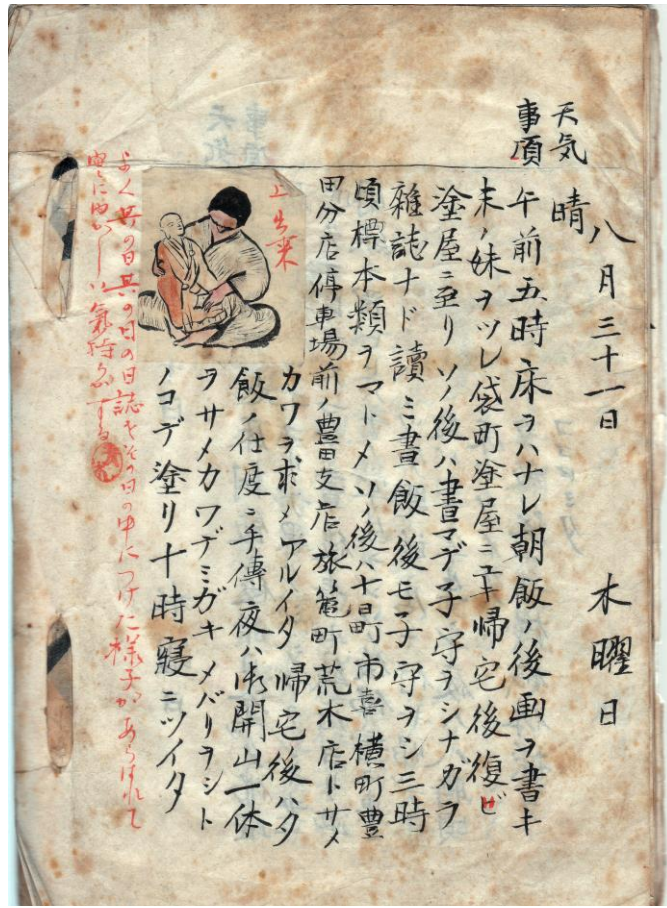 八月三十一日 木曜日
天気 晴
事項 午前五時床ヲハナレ朝飯ノ後画ヲ書キ
末ノ妹ヲツレ袋町塗屋ニユキ帰宅後復ビ
塗屋ニ至リソノ後ハ晝マデ子守ヲシナガラ
雑誌ナド讀ミ晝飯後モ子守ヲシ三時
頃標本類ヲマトメソノ後ハ十日町市喜横町豊
田分店停車場前ノ豊田支店旅篭町荒木店トサメ
カワヲ求メアルイタ帰宅後ハタ
飯ノ仕度ニ手傳夜ハ御開山一体
ヲサメカワデミガキメバリヲシト
ノコデ塗リ十時寢ニツイタ
上出来
よく其の日其の日の日誌をその日の中につけた様子があらはれて
気持がする